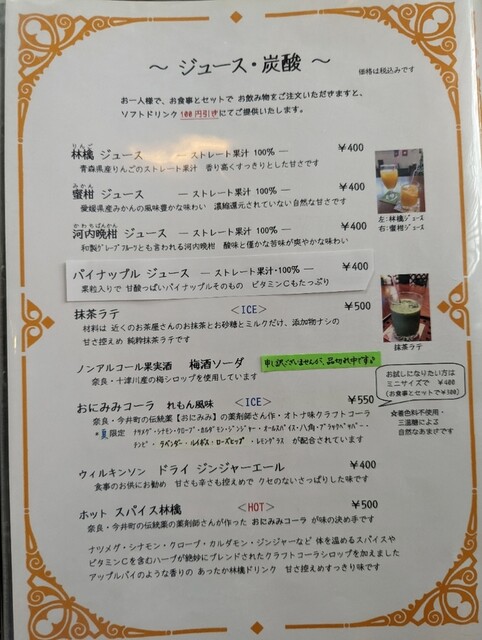 ～ ジュース・炭酸 ～
価格は税込みです
お一人様で、お食事とセットで お飲み物をご注文いただきますと、
ソフトドリンク 100円引きにてご提供いたします。
りんご
林檎 ジュース ― ストレート果汁 100％― ￥400
青森県産りんごのストレート果汁 香り高くすっきりとした甘さです
みかん
蜜柑 ジュース ― ストレート果汁 100％― ￥400
愛媛県産みかんの風味豊かな味わい 濃縮還元されていない自然な甘さです
かわちばんかん
河内晩柑 ジュース ― ストレート果汁 100％― ￥400
和製グレープフルーツとも言われる河内晩柑 酸味と僅かな苦味が爽やかな味わい
左:林檎ジュース
右:蜜柑ジュース
パイナップル ジュース ― ストレート果汁・100％― ￥400
果粒入りで 甘酸っぱいパイナップルそのもの ビタミンCもたっぷり
抹茶ラテ ＜ICE＞ ￥500
材料は 近くのお茶屋さんのお抹茶とお砂糖とミルクだけ、添加物ナシの
甘さ控え め 純粋抹茶ラテです
抹茶ラテ
ノンアルコール果実酒 梅酒ソーダ 申し訳ございませんが、品切れ中です
奈良・十津川産の梅シロップを使用しています
お試しになりたい方は
ミニサイズで ￥400
(お食事とセットで￥300)
おにみみコーラ れもん風味 ＜ICE＞ ￥550
奈良・今井町の伝統薬【おにみみ】の薬剤師さん作・オトナ味クラフトコーラ
＊夏限定 ナツメグ・シナモン・クローブ・カルダモン・ジンジャー・オールスパイス・八角・ブラックペッパー・
チンピ・ラベンダー・ルイボス・ローズヒップ・レモングラス が配合されています
☆着色料不使用・
三温糖による
自然なあまさです
ウィルキンソン ドライ ジンジャーエール ￥400
食事のお供にお勧め 甘さも辛さも控えめで クセのないさっぱりした味です
ホット スパイス林檎 ＜HOT＞ ￥500
奈良・今井町の伝統薬の薬剤師さんが作った おにみみコーラ が味の決め手です
ナツメグ・シナモン・クローブ・カルダモン・ジンジャーなど 体を温めるスパイスや
ビタミンCを含むハーブが絶妙にブレンドされたクラフトコーラシロップを加えました
アップルパイのような香りの あったか林檎ドリンク 甘さ控えめすっきり味です